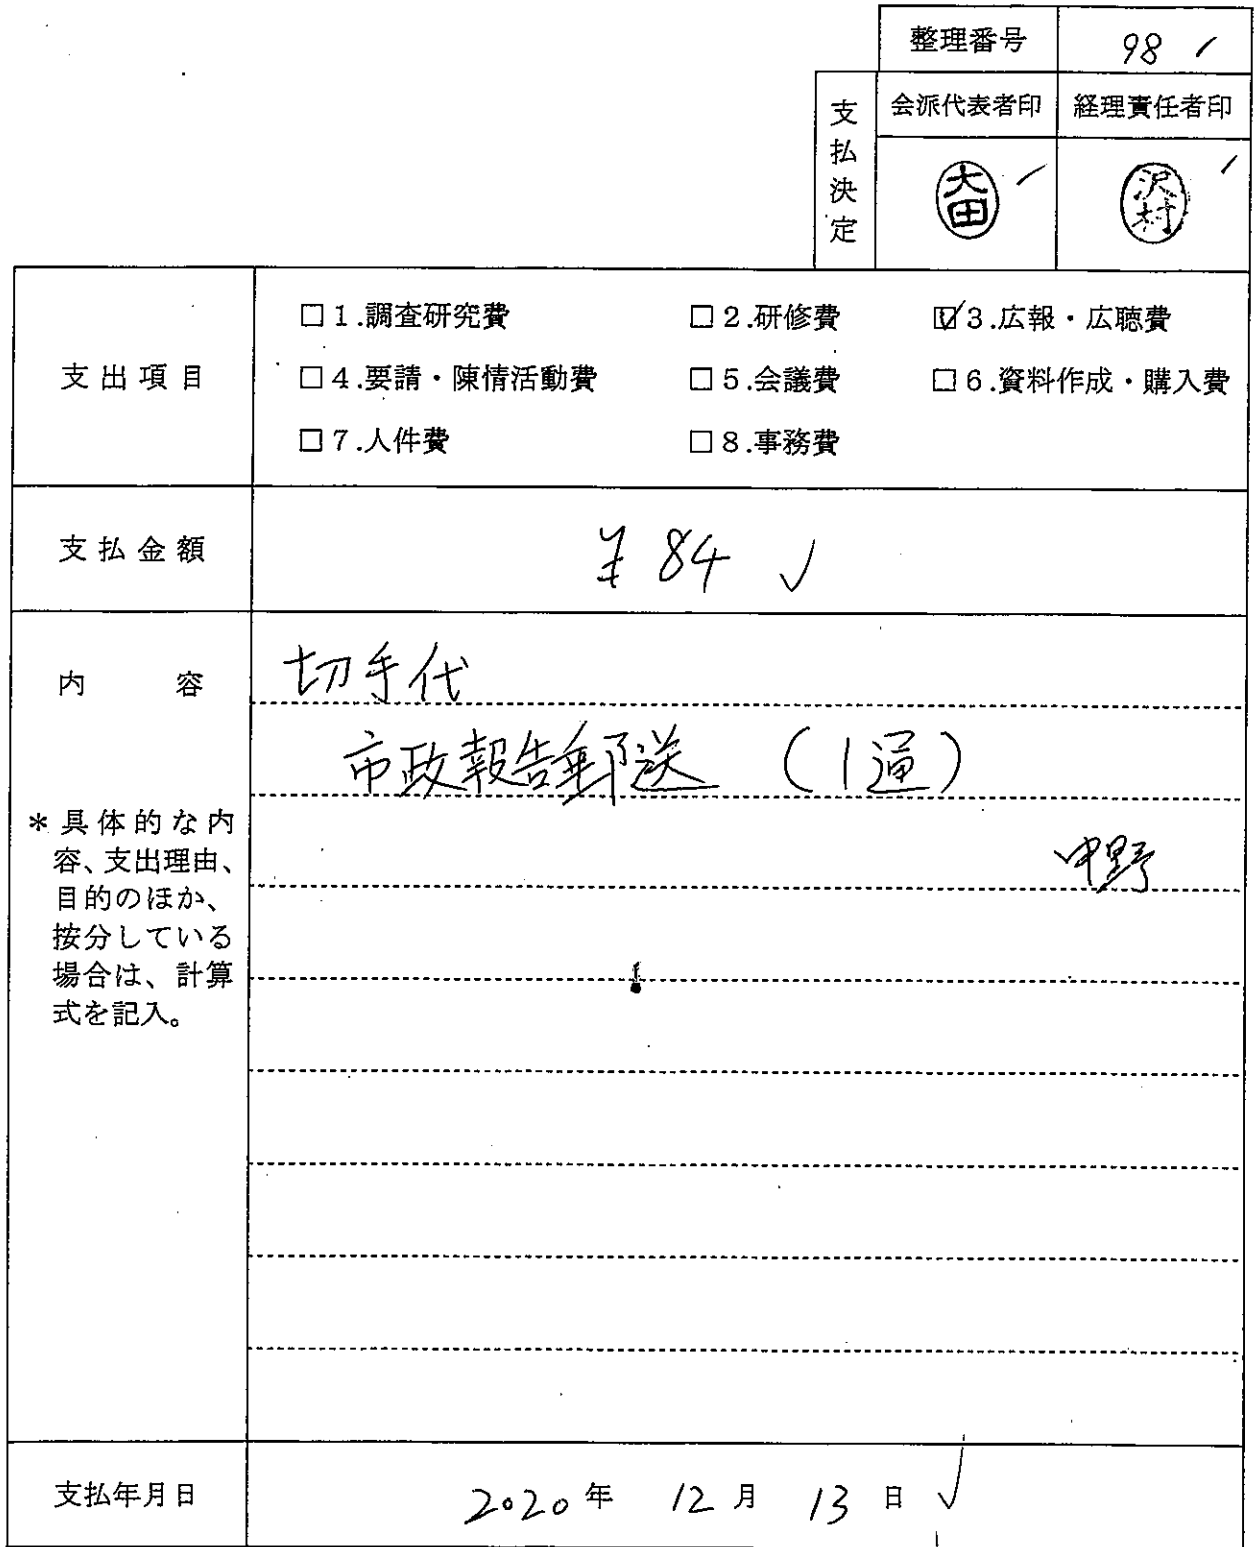 整理番号 98
支払決定 会派代表者印 経理責任者印
大田 沢村
支出項目
□1.調査研究費 □2.研修費 ☑3.広報・広聴費
□4.要請・陳情活動費 □5.会議費 □6.資料作成・購入費
□7.人件費 □8.事務費
支払金額 ¥84
内容 切手代
市政報告郵送 (1通)
中野
*具体的な内
容、支出理由、
目的のほか、
按分している
場合は、計算
式を記入。
支払年月日 2020年 12月 13日